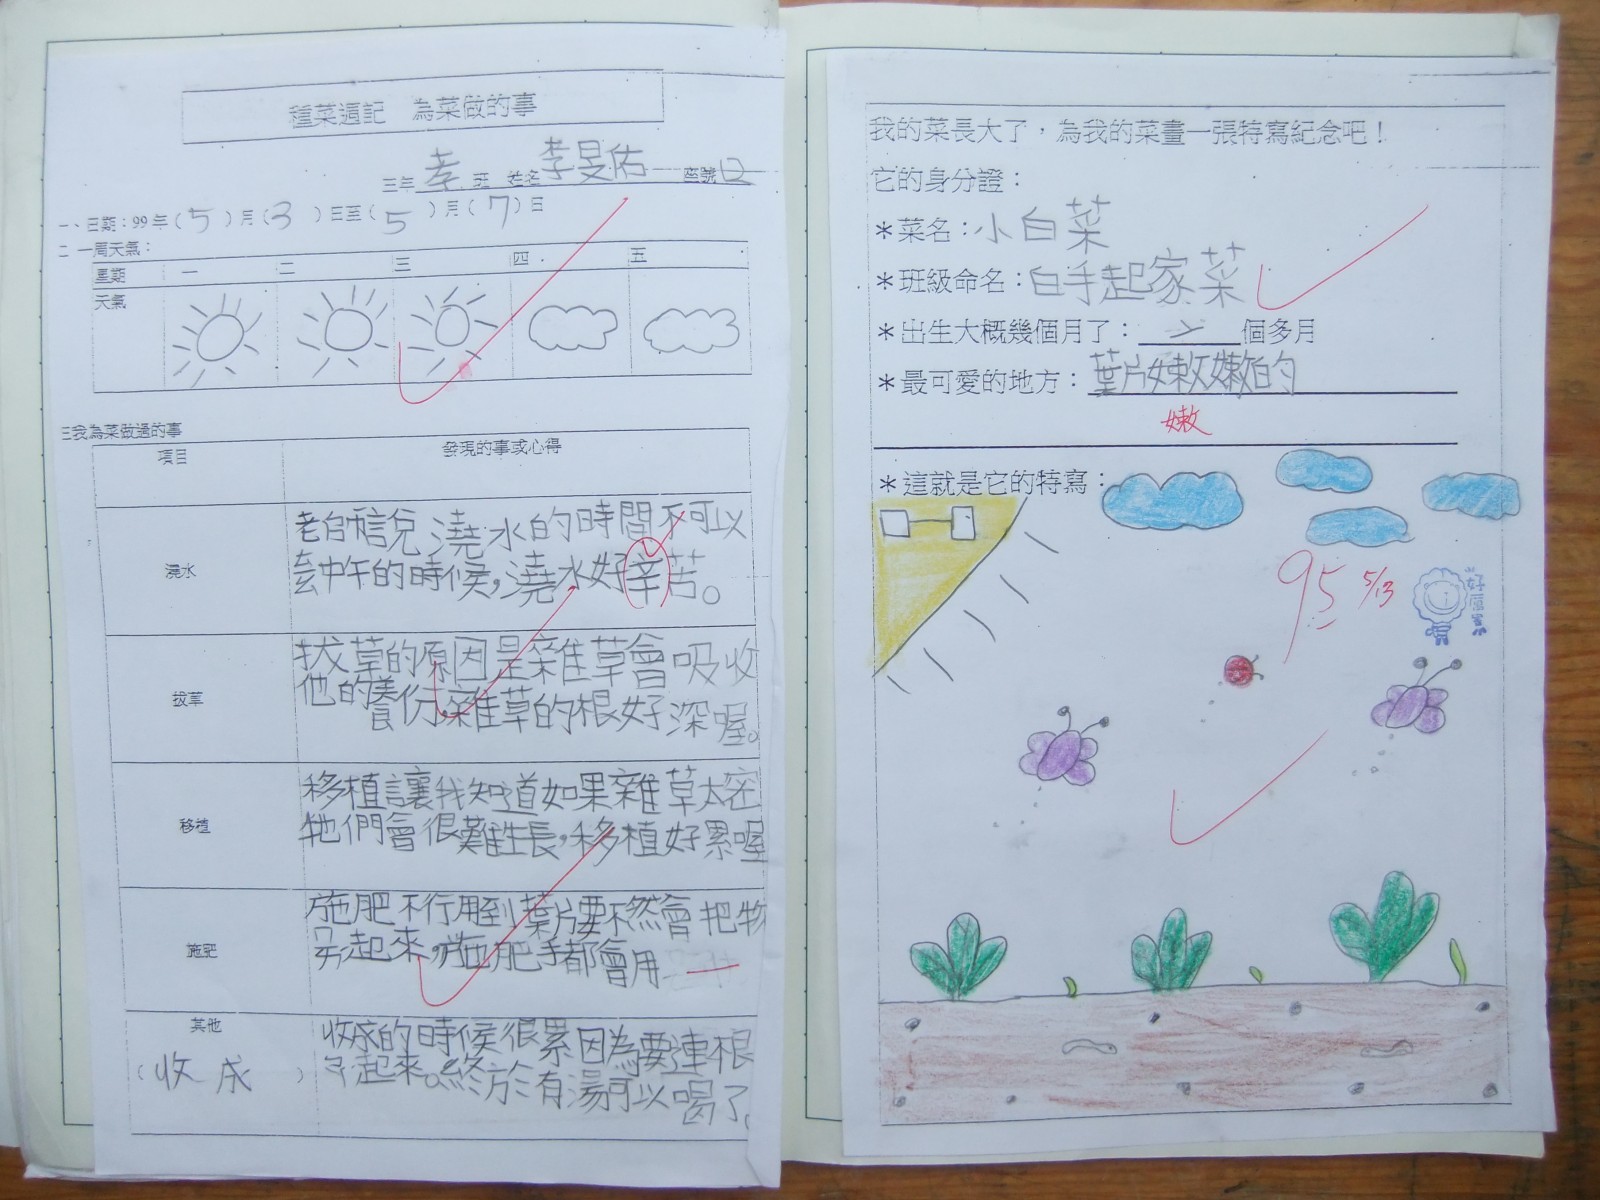 種菜週記　為菜做的事
三年 孝 班 姓名 李旻佑 座號
一、日期：99年(5)月(3)日至(5)月(7)日
二 一周天氣：
星期 一 二 三 四 五
天氣
三我為菜做過的事
項目 發現的事或心得
澆水
老師說澆水的時間不可以
在中午的時候,澆水好辛苦。
拔草
拔草的原因是雜草會吸收
他的養份,雜草的根好深喔。
移植
移植讓我知道如果雜草太密
牠們會很難生長,移植好累喔
施肥
施肥不行用到葉片要不然會把物
起來,施肥手都會用
其他
(收成)
收成的時候很累因為要連根
起來。終於有湯可以喝了。
我的菜長大了，為我的菜畫一張特寫紀念吧！
它的身分證：
＊菜名：小白菜
＊班級命名：白手起家菜
＊出生大概幾個月了： 個多月
＊最可愛的地方：葉片嫩嫩的
嫩
＊這就是它的特寫：
95 5/13